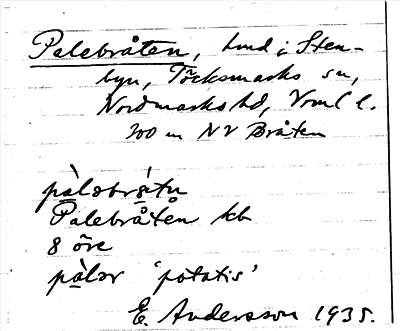 Palebråten, lund i Sten-
byn, Töcksmarks sn,
Nordmarks hd, Vrml l.
200 m NV Bråten
pàləbrǻtn
Palebråtån kb
8 öre
pàlər 'potatis'
E. Andersson 1935.